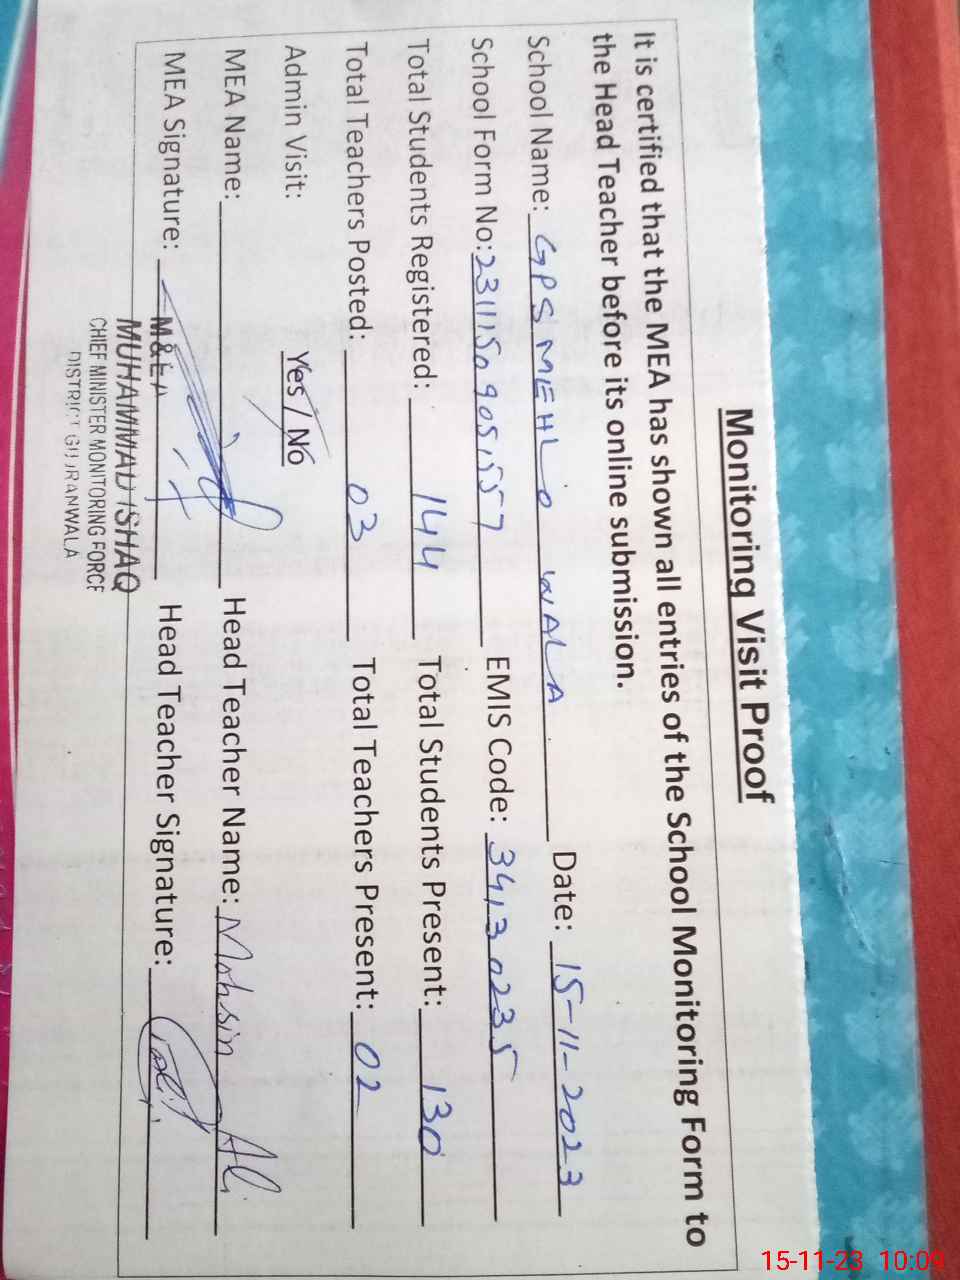 Monitoring Visit Proof
It is certified that the MEA has shown all entries of the School Monitoring Form to
the Head Teacher before its online submission.
School Name: GPS MEHLO WALA Date: 15-11-2023
School Form No: 2311150905157 EMIS Code: 34130235
Total Students Registered: 144 Total Students Present: 130
Total Teachers Posted: 03 Total Teachers Present: 02
Admin Visit: Yes / No
MEA Name: Head Teacher Name: Mohsin Ali
MEA Signature: Head Teacher Signature:
M&EA
MUHAMMAD ISHAQ
CHIEF MINISTER MONITORING FORCE
DISTRICT GUJRANWALA
15-11-23 10:09